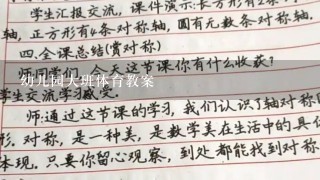 学生汇报交流,课件演示:长方形有2条
轴,正方形有4条对称轴,圆有无数条对称轴.
四.全课总结(赏对称)
今天这节课你有什么收获?
幼儿园大班体育教案
学生交流学习感受.
师:通过这节课的学习,我们认识了轴对称图
形.对称,是一种美,是数学美在生活中的具体
体现.只要你留心观察,到处都能找到对称